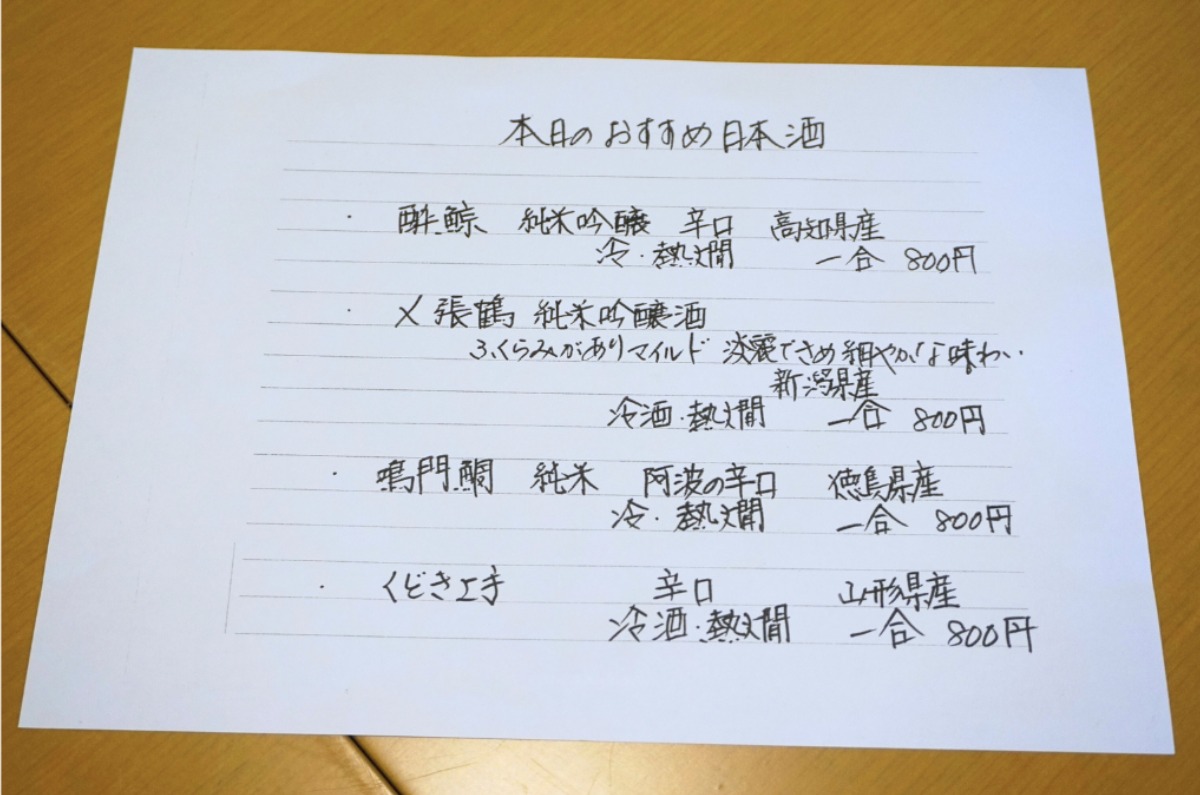 本日のおすすめ日本酒
・ 酔鯨 純米吟醸 辛口 高知県産
冷・熱燗 一合 800円
・ 〆張鶴 純米吟醸酒
ふくらみがありマイルド 淡麗できめ細やかな味わい
新潟県産
冷酒・熱燗 一合 800円
・ 鳴門鯛 純米 阿波の辛口 徳島県産
冷・熱燗 一合 800円
・ くどき上手 辛口 山形県産
冷酒・熱燗 一合 800円